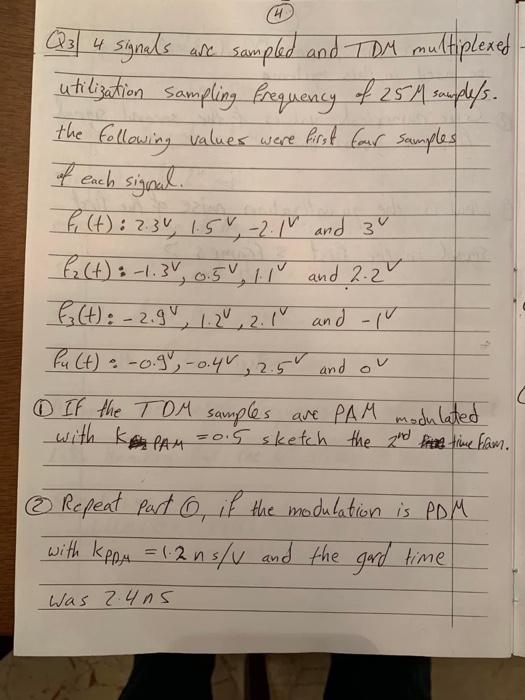 4
Q3] 4 signals are sampled and TDM multiplexed
utilization sampling frequency of 25M sample/s.
the following values were first four samples
of each signal.
f₁(t): 2.3V, 1.5V, -2.1V and 3V
f₂(t): -1.3V, 0.5V, 1.1V and 2.2V
f₃(t): -2.9V, 1.2V, 2.1V and -1V
f₄(t): -0.9V, -0.4V, 2.5V and 0V
① IF the TDM samples are PAM modulated
with K PAM = 0.5 sketch the 2nd time fram.
② Repeat Part ①, if the modulation is PDM
with KPDM = 1.2 ns/V and the gard time
was 2.4ns